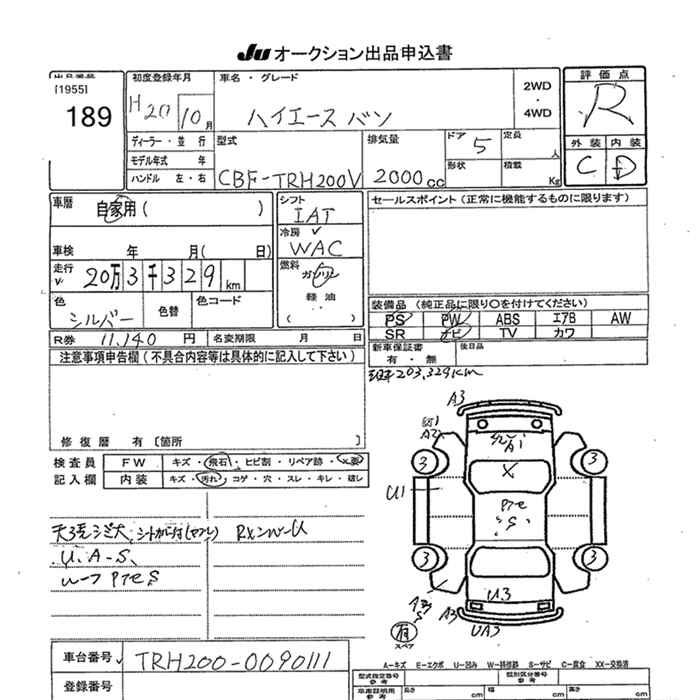 JU オークション出品申込書
出品番号
[1955]
189
初度登録年月
H20 10月
ディーラー・並行
モデル年式 年
ハンドル 左・右
車名・グレード
ハイエース バン
2WD
・
4WD
型式
CBF-TRH200V
排気量
2000cc
ドア 5
定員 人
形状
積載 Kg
評価点
R
外装 内装
C D
車歴
自家用( )
車検 年 月( 日)
走行
20万3千329km
色
シルバー
色替
色コード
シフト
IAT
冷房
WAC
燃料
ガソリン
軽油
( )
R券 11,140円
名変期限 月 日
セールスポイント(正常に機能するものに限ります)
装備品(純正品に限り○を付けてください)
PS PW ABS エアB AW
SR ナビ TV カワ
新車保証書
有・無
後日品
203,329km
注意事項申告欄(不具合内容等は具体的に記入して下さい)
修復歴 有[箇所 ]
検査員
記入欄
FW キズ・飛石・ヒビ割・リペア跡・×要
内装 キズ・汚れ・コゲ・穴・スレ・キレ・破レ
U.A-S
A3
A1
X
3 3
U1
S
3 3
U3
A3
UA3
有
スペア
車台番号 TRH200-0090111
登録番号
A=キズ E=エクボ U=凹み W=補修跡 S=サビ C=腐食 XX=交換済
型式指定番号
参考
類別区分番号
参考
車庫証明用
参考
長さ cm 幅 cm 高さ cm